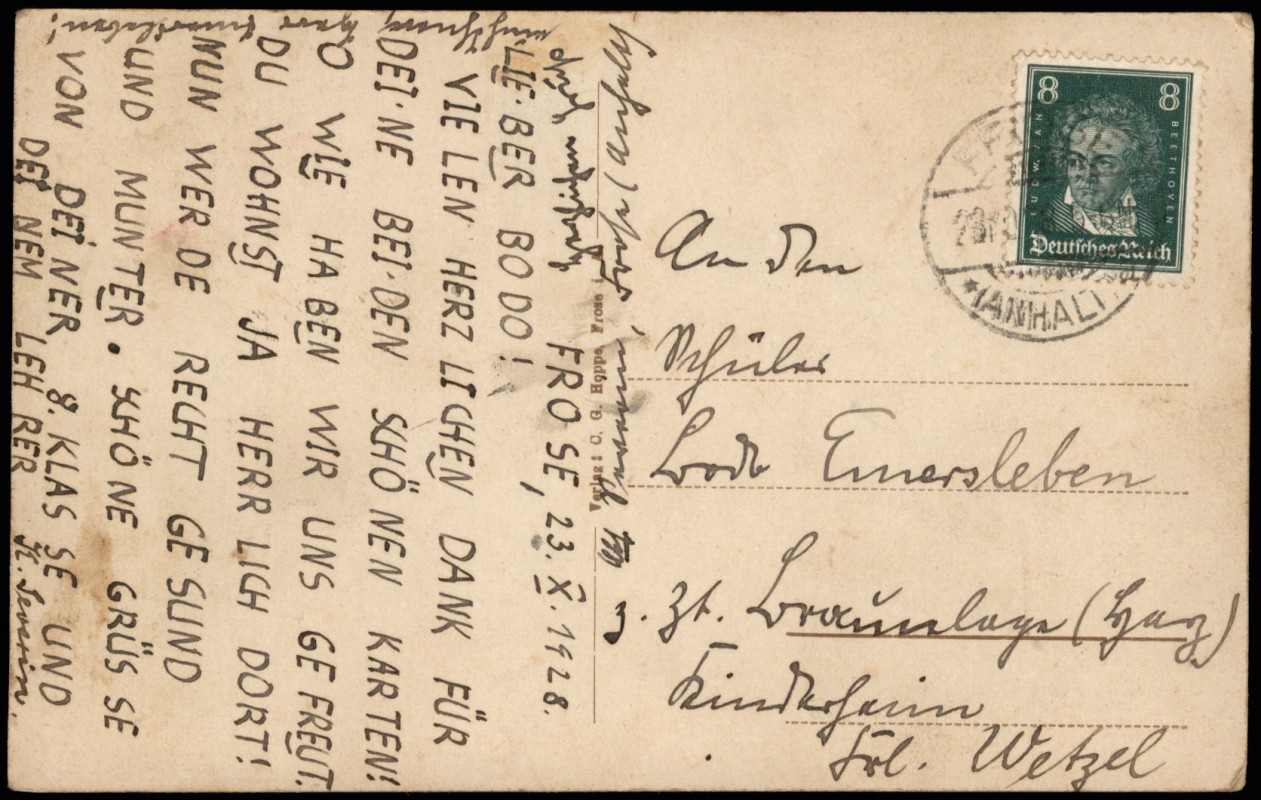 FROSE, 23. X. 1928.
LIE·BER BODO!
VIE LEN HERZ LICHEN DANK FÜR
DEI·NE BEI·DEN SCHÖ NEN KARTEN!
O WIE HA BEN WIR UNS GE FREUT.
DU WOHNST JA HERR LICH DORT!
NUN WER DE RECHT GE SUND
UND MUNTER. SCHÖ NE GRÜS SE
VON DEI NER 8. KLAS SE UND
DEI NEM LEH RER
Severin.
Verlag: C. G. Hoppe, Frose i.
8 8
LUDWIG VAN BEETHOVEN
Deutsches Reich
(ANHALT)
An den
Schüler
Bodo Emersleben
z. Zt. Braunlage (Harz)
Kinderheim
Frl. Wetzel